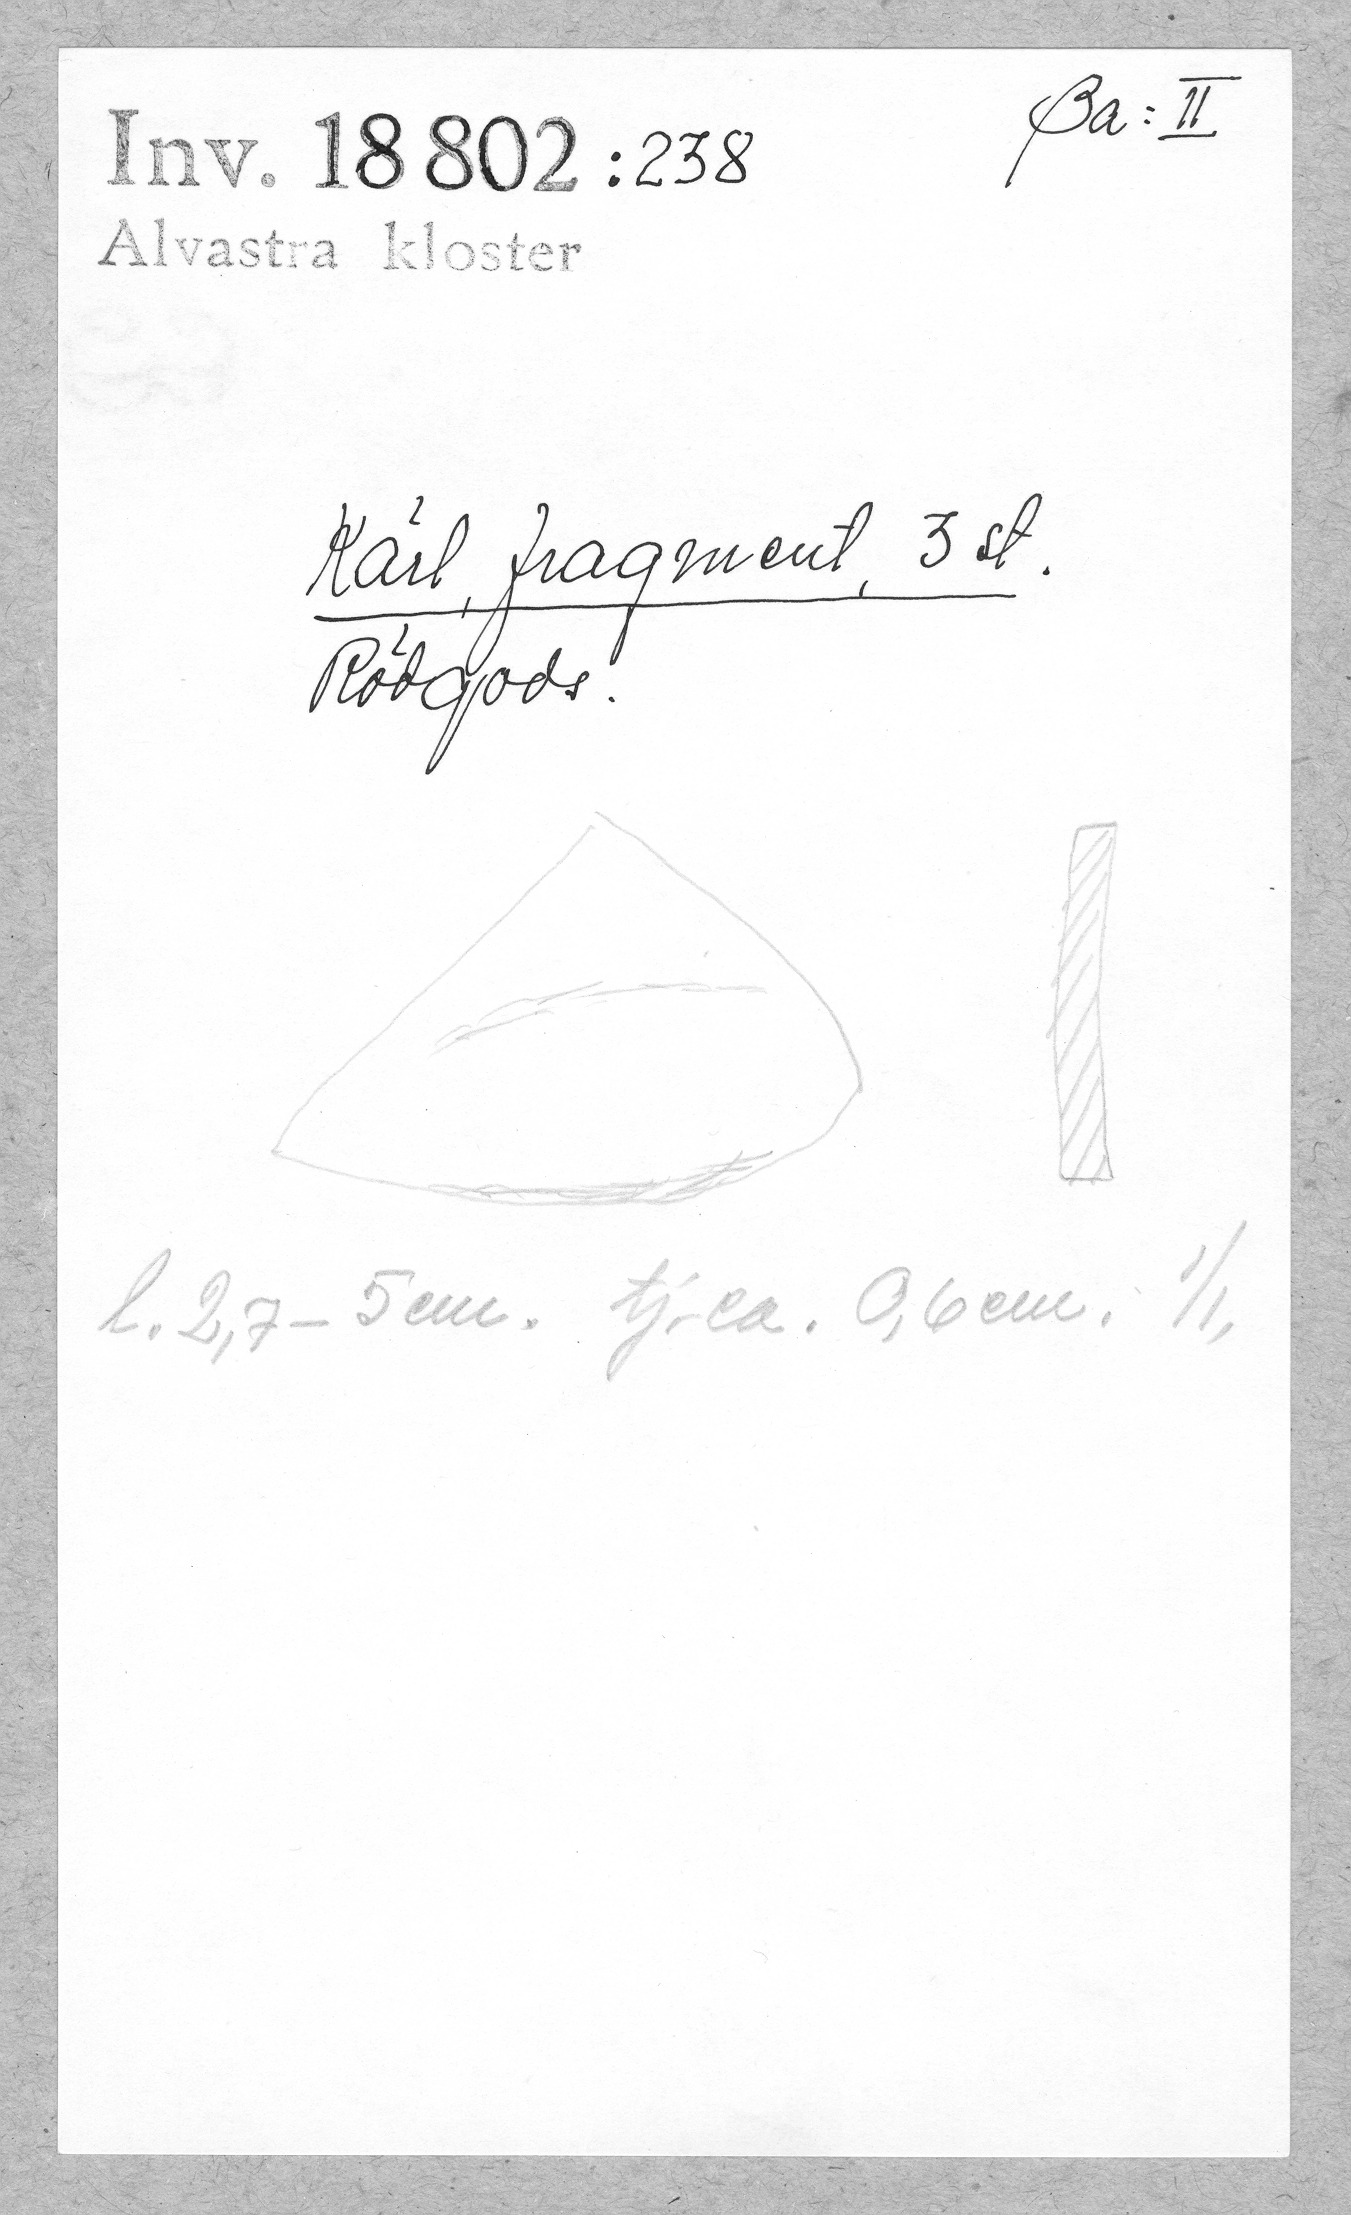 Inv. 18 802 :238
Ba: II
Alvastra kloster
Kärl, fragment, 3 st.
Rödgods.
l. 2,7 – 5 cm. tj. ca. 0,6 cm. 1/1,